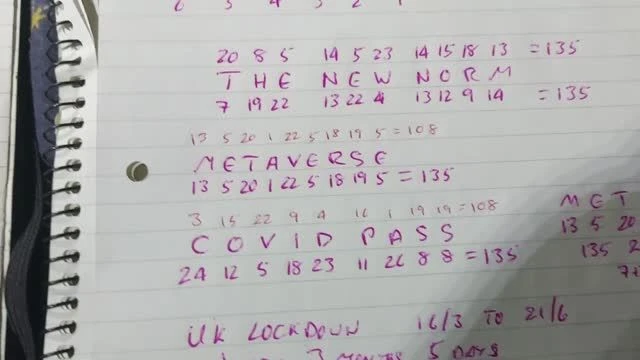 6 5 4 3 2 1
20 8 5 14 5 23 14 15 18 13 = 135
THE NEW NORM
7 19 22 13 22 4 13 12 9 14 = 135
13 5 20 1 22 5 18 19 5 = 108
METAVERSE
13 5 20 1 22 5 18 19 5 = 135
3 15 22 9 4 16 1 19 19 = 108
COVID PASS
24 12 5 18 23 11 26 8 8 = 135
MET
13 5 20
135
UK LOCKDOWN 16/3 TO 21/6
3 MONTHS 5 DAYS